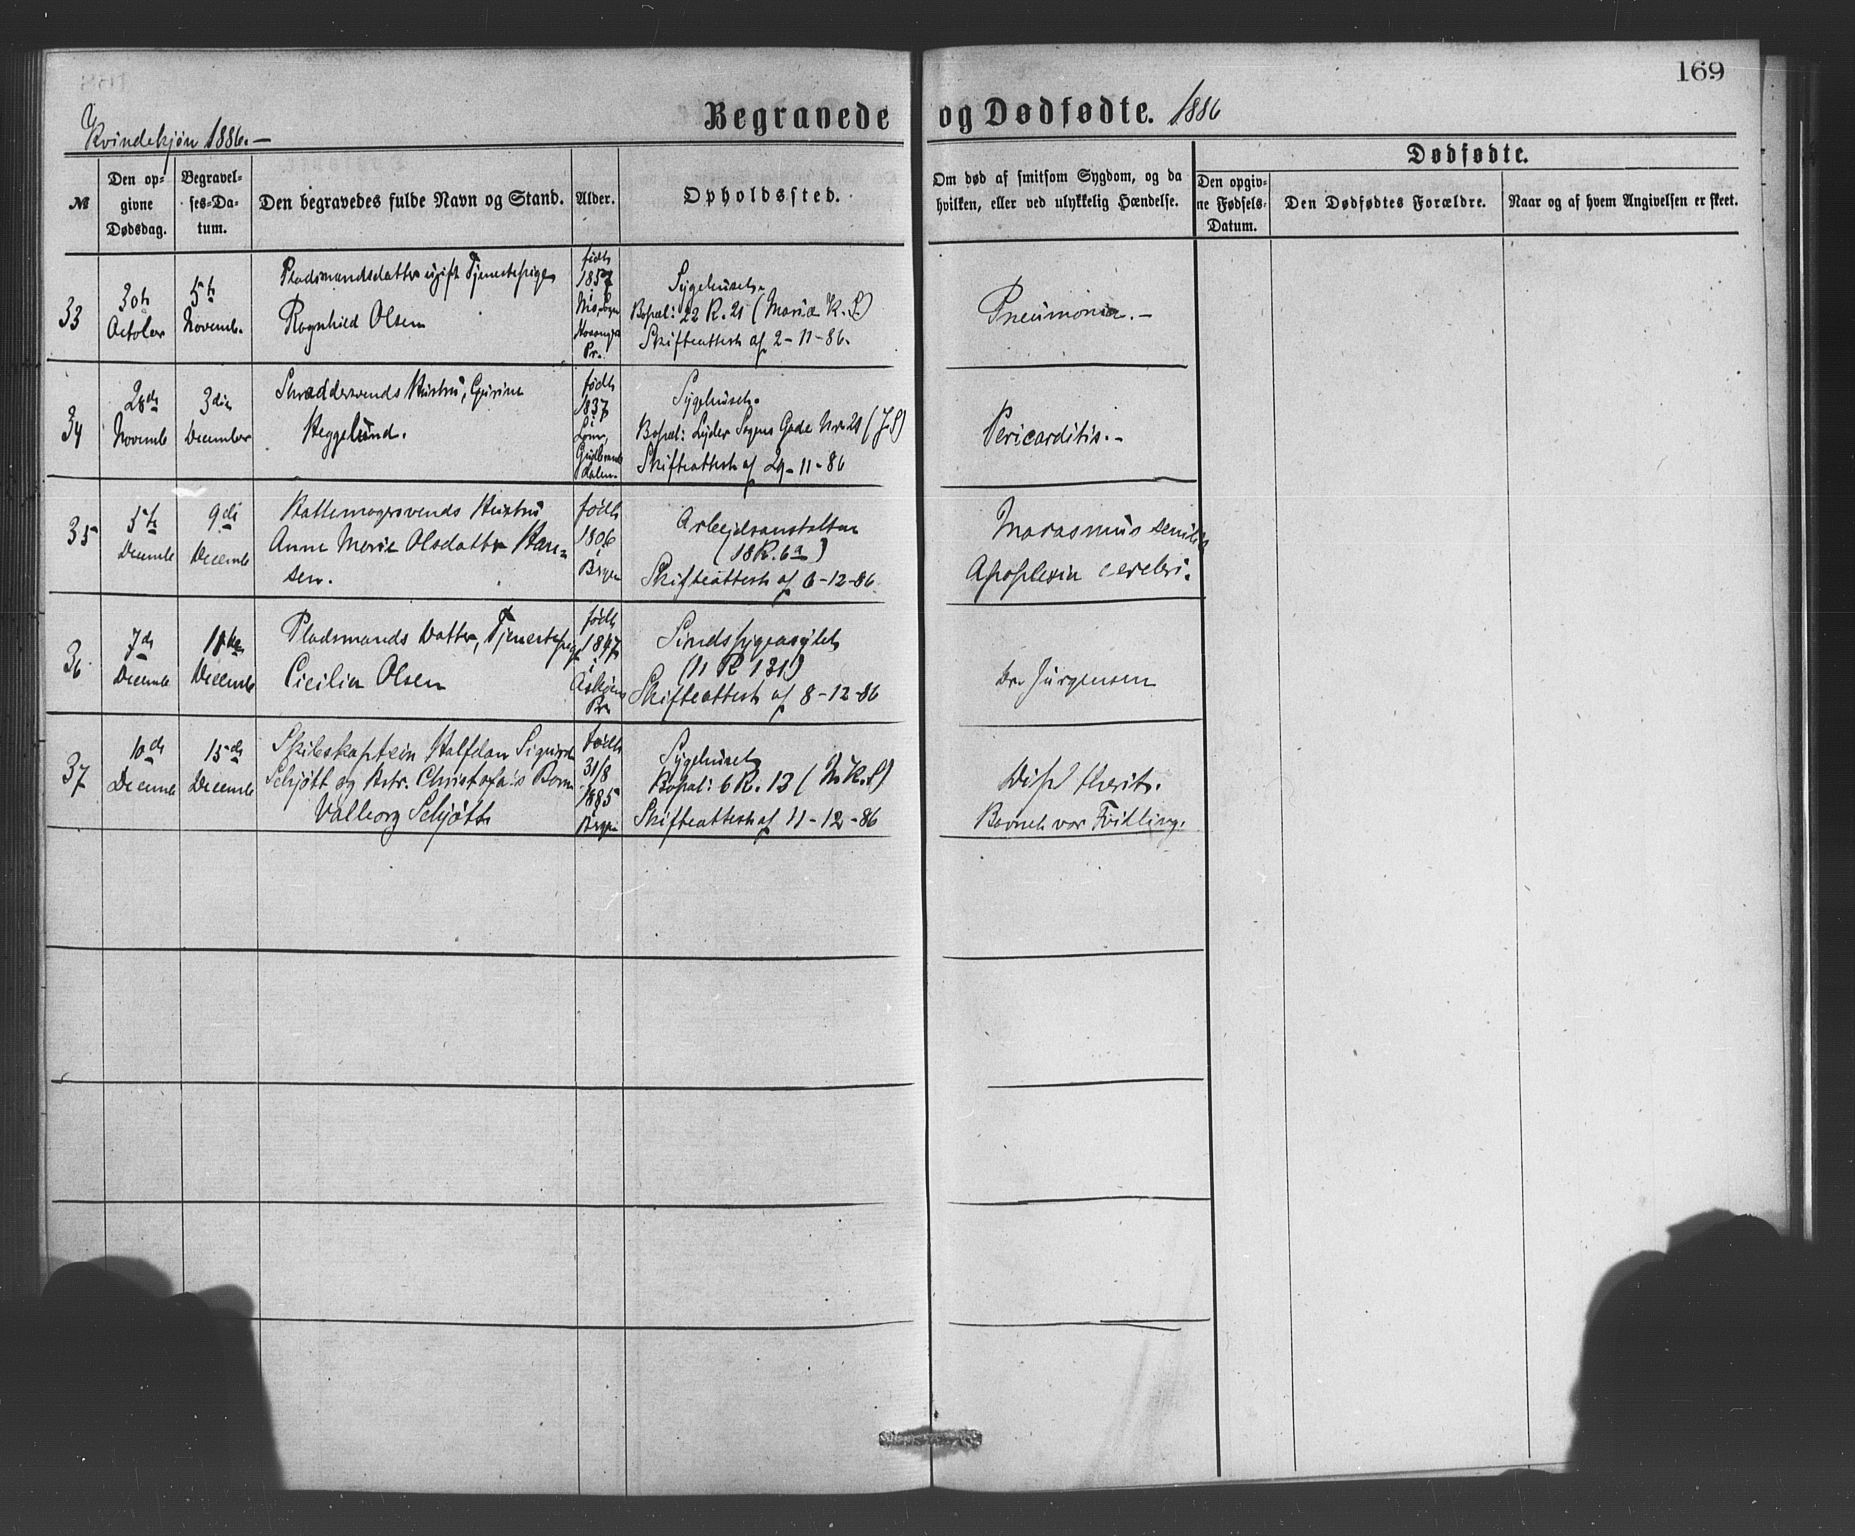 169
Begravede og Dødfødte. 1886
Kvindekjøn 1886.-
Dødfødte.
№
Den op-
givne
Dødsdag.
Begravel-
ses-Da-
tum.
Den begravedes fulde Navn og Stand.
Alder.
Opholdssted.
Om død af smitsom Sygdom, og da
hvilken, eller ved ulykkelig Hændelse.
Den opgiv-
ne Fødsels-
Datum.
Den Dødfødtes Forældre.
Naar og af hvem Angivelsen er skeet.
33
30te
October
5te
Novemb.
Pladsmandsdatter ugift Tjenestepige
Ragnhild Olsen
født
1857
i
Hosanger
Pr.
Sygehuset.
Bopæl: 22 R. 21 (Mariæ K. S.)
Skifteattest af 2-11-86.
Pneumonia.-
34
28de
Novemb
3die
December
Skræddersvends Hustru, Gurine
Heggelund.
født
1837
i
Lom,
Gudbrands
dalen.
Sygehuset.
Bopæl: Lyder Sagens Gade Nr. 21 (J. S)
Skifteattest af 29-11-86
Pericarditis.-
35
5te
Decemb
9de
Decemb
Hattemagersvends Hustru
Anne Marie Olsdatter Han=
sen.
født
1806
i
Bergen
Arbejdsanstalten
(18 R. 6a)
Skifteattest af 6-12-86.
Marasmus senilis
Apoplexia cerebri.
36
7de
Decemb
11te
Decemb
Pladsmands Datter, Tjenestepige
Cicilia Olsen
født
1847
i
Askøens
Pr
Sindssygeasylet
(11 R 131)
Skifteattest af 8-12-86
Dr. Jürgensen
37
10de
Decemb
15de
Decemb
Skibskaptein Halfdan Sigurd
Schjøtt og Hstr. Christofa's Barn
Valborg Schjøtt
født
31/8
1885
Bergen
Sygehuset
Bopæl: 6 R. 13 (N. K. S)
Skifteattest af 11-12-86
Diphtherit.
Barnet var Tvilling.